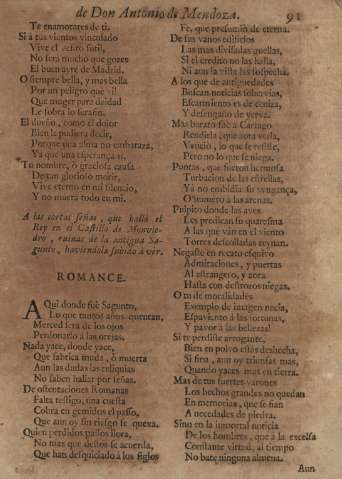 de Don Antonio de Mendoza. 91
Te enamorares de ti.
Si a tus vientos vinculado
Vive el
No sera mucho que goze
El buen ayre de Madrid.
O siempre bella, y mas bella
Por un peligro que vil
Que muger para deidad
Le sobra lo serafin.
El como el dolor
Bien le pudiera dezir,
Porque una alma no embaraza,
Ya que una esperança si.
Tu nombre, ò graciosa causa
De tan glorioso morir,
Vive eterno en mi silencio,
Y no muera todo en mi.
A las cortas señas, que hallò el
Rey en el Castillo de Monvie-
dro, ruinas de la antigua Sa-
gunto, haviendole subido à ver.
ROMANCE.
AQui donde fuè Sagunto,
Lo que tantos años quentan,
Merced serà de los ojos
Perdonarlo à las orejas.
Nada yace, donde yace,
Que fabrica muda, ò muerta
Aun las dudas las reliquias
No saben hallar por señas.
De ostentaciones Romanas
Falta testigo, una cuesta
Cobra en gemidos el passo,
Que aun oy su riesgo se quexa.
Quien perdidos passos llora,
No mas que destos se acuerda,
Que han desquiciado à los siglos
Fe, que presumiàn de eterna.
De sus vanos edificios
Las mas divisadas huellas,
Si el credito no las halla,
Ni aun la vista las sospecha.
A los que de antiguedades
Buscan noticias sobervias,
Escarmiento es de ceniza,
Y desengaño de yerva.
Mas barato fue à Cartago
Rendirla, que aora verla,
Venciò, lo que se resiste,
Pero no lo que se niega.
Puntas, que fueron hermosa
Turbacion de las estrellas,
Ya no embidia su venganza,
O numero à las arenas.
Pulpito donde las aves
Les predican su quaresma
A las que vàn en el viento
Torres desmoliadas reynan.
Negaste en recato esquivo
Admiraciones, y puertas
Al estrangero, y aora
Hasta con destrozos niegas.
O tu de moralidades
Exemplo de imagen necia,
Espaviento à las fortunas,
Y pavor à las bellezas!
Si te perdiste arrogante,
Bien en polvo estàs deshecha,
Si fina, aun oy triunfas mas,
Quando yaces mas en tierra.
Mas de tus fuertes varones
Los hechos grandes no quedan
En memorias, que se fian
A necedades de piedra.
Sino en la inmortal noticia
De los hombres, que à la excelsa
Constante virtud, al tiempo
No bate ninguna almena.
Aun